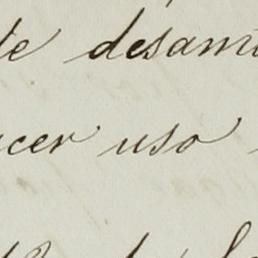 te desam
cer uso